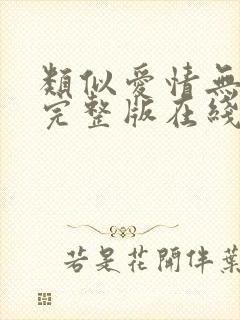 類似愛情無
完整版在綫
若是花開伴葉